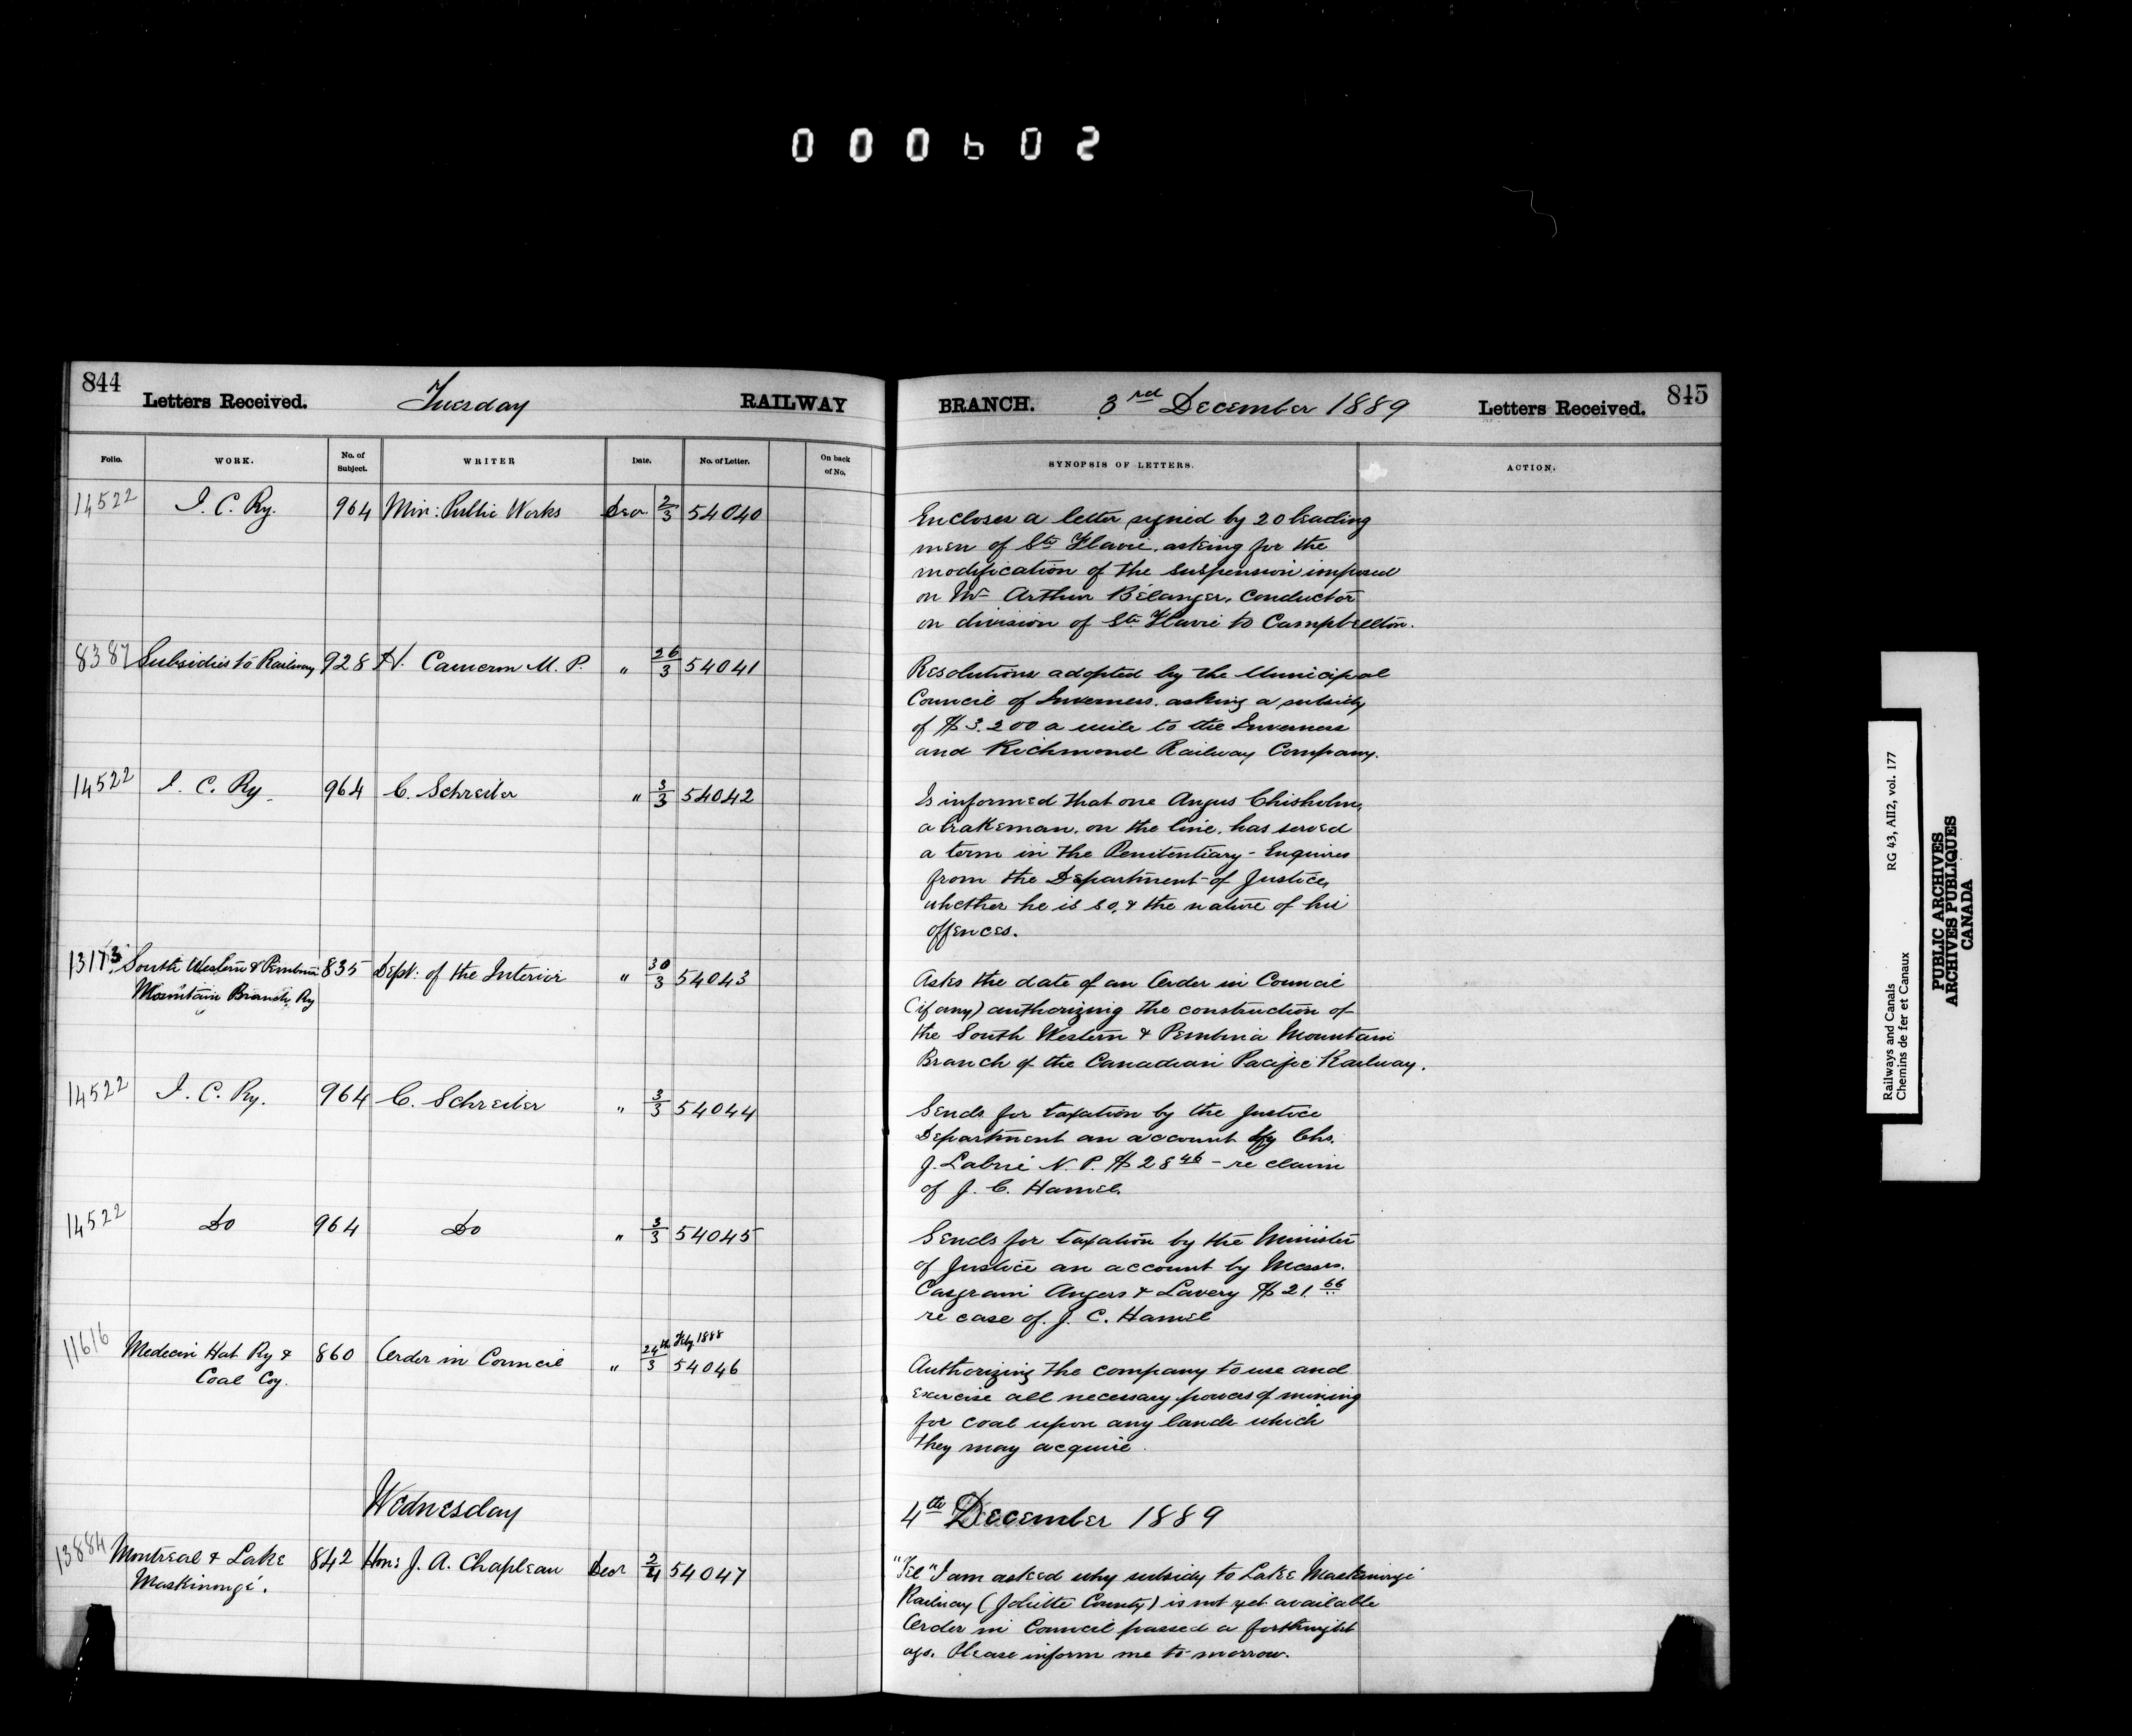 000602
844
Letters Received.
Tuesday
RAILWAY
Folio. WORK. No. of Subject. WRITER Date. No. of Letter. On back of No.
14522 I. C. Ry. 964 Min: Public Works Decr 2/3 54040
8387 Subsidies to Railways 928 H. Cameron M. P. " 26/3 54041
14522 I. C. Ry. 964 C. Schreiber " 3/3 54042
13173 South Western & Pembina 835 Dept: of the Interior " 30/3 54043
Mountain Branch Ry
14522 I. C. Ry. 964 C. Schreiber " 3/3 54044
14522 Do 964 Do " 3/3 54045
11616 Medecin Hat Ry & 860 Order in Council " 24th Feby 1888/3 54046
Coal Coy.
Wednesday
13884 Montreal & Lake 842 Hon: J. A. Chapleau Decr 2/4 54047
Maskinongé.
BRANCH.
3rd December 1889
Letters Received.
845
SYNOPSIS OF LETTERS. ACTION.
Encloses a letter signed by 20 leading
men of Ste Flavie, asking for the
modification of the suspension imposed
on Mr Arthur Bélanger, conductor
on division of Ste Flavie to Campbellton.
Resolutions adopted by the Municipal
Council of Inverness, asking a subsidy
of $3.200 a mile to the Inverness
and Richmond Railway Company.
Is informed that one Angus Chisholm,
a brakeman, on the line, has served
a term in the Penitentiary - Enquires
from the Department of Justice,
whether he is so, & the nature of his
offences.
Asks the date of an Order in Council
(if any) authorizing the construction of
the South Western & Pembina Mountain
Branch of the Canadian Pacific Railway.
Sends for taxation by the Justice
Department an account by Chs.
J. Labrie N. P. $28 46 - re claim
of J. C. Hamel.
Sends for taxation by the Minister
of Justice an account by Messrs.
Casgrain Angers & Lavery $21. 66
re case of J. C. Hamel
Authorizing the company to use and
exercise all necessary powers of mining
for coal upon any lands which
they may acquire.
4th December 1889
"Tel" I am asked why subsidy to Lake Maskinongé
Railway (Joliette County) is not yet available
Order in Council passed a forthnight
ago. Please inform me to-morrow.
Railways and Canals RG 43, AII2, vol. 177
Chemins de fer et Canaux
PUBLIC ARCHIVES
ARCHIVES PUBLIQUES
CANADA